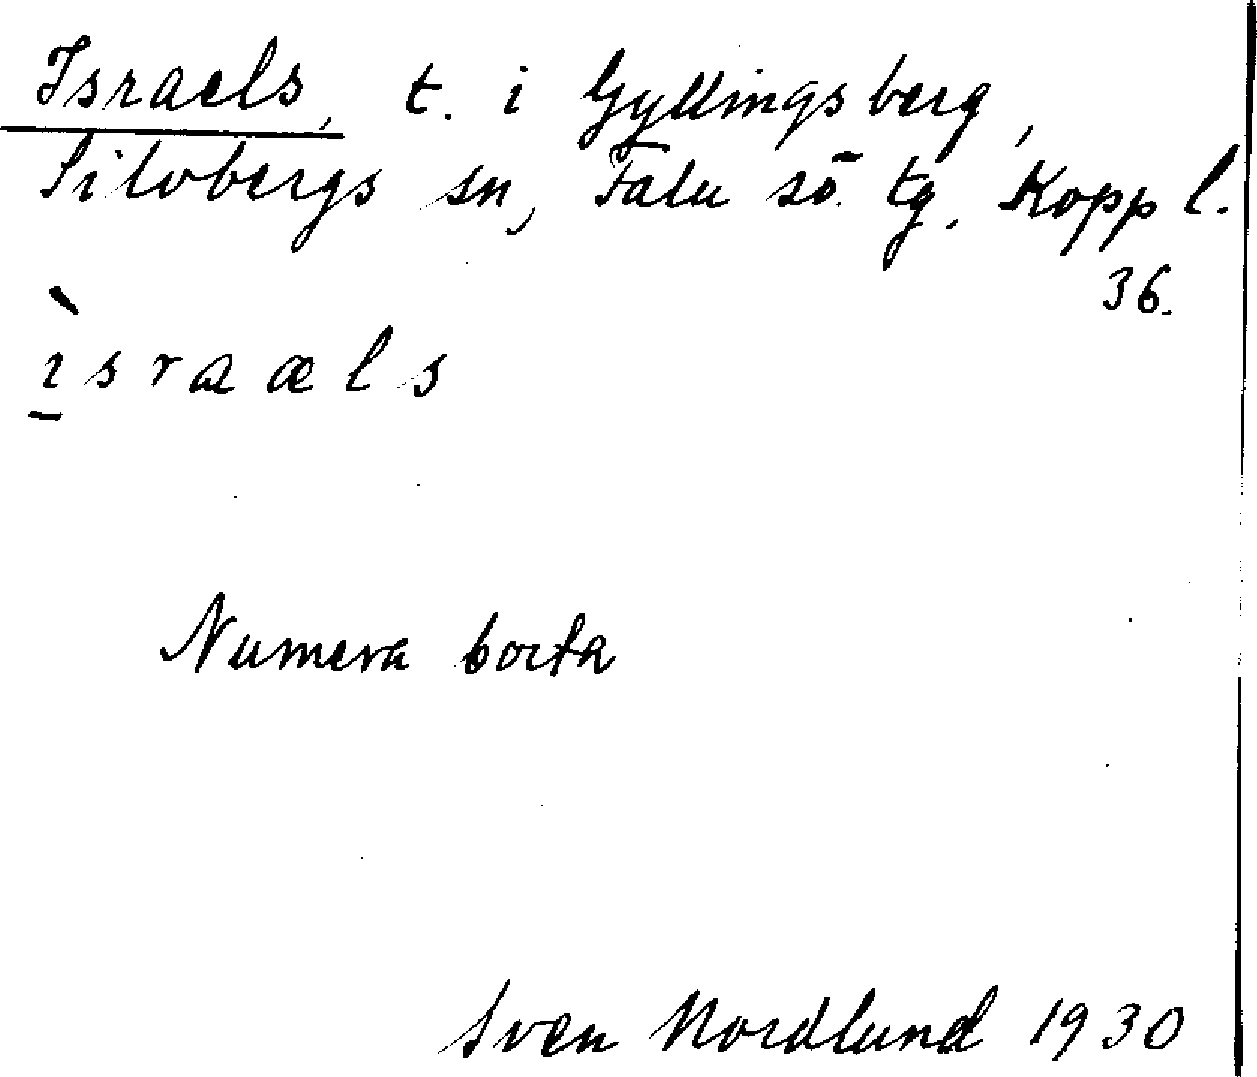 Israels, t. i Gyllingsberg,
Silvbergs sn, Falu sö. tg. Kopp l.
36.
ìsraæls
Numera borta
Sven Nordlund 1930